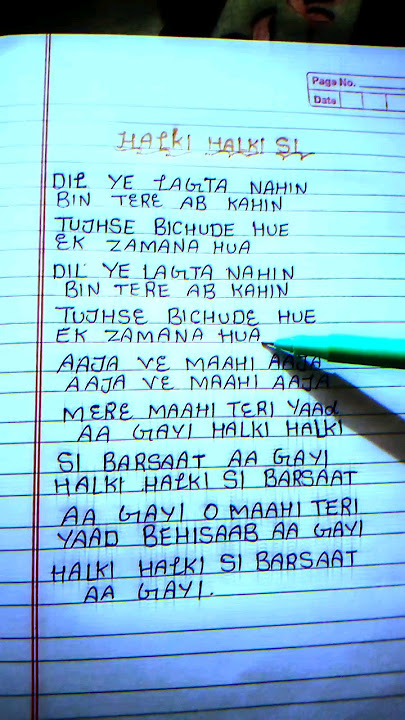 Page No.
Date
HALKI HALKI SI
DIL YE LAGTA NAHIN
BIN TERE AB KAHIN
TUJHSE BICHUDE HUE
EK ZAMANA HUA
DIL YE LAGTA NAHIN
BIN TERE AB KAHIN
TUJHSE BICHUDE HUE
EK ZAMANA HUA
AAJA VE MAAHI AAJA
AAJA VE MAAHI AAJA
MERE MAAHI TERI YAAd
AA GAYI HALKI HALKI
SI BARSAAT AA GAYI
HALKI HALKI SI BARSAAT
AA GAYI O MAAHI TERI
YAAD BEHISAAB AA GAYI
HALKI HALKI SI BARSAAT
AA GAYI.